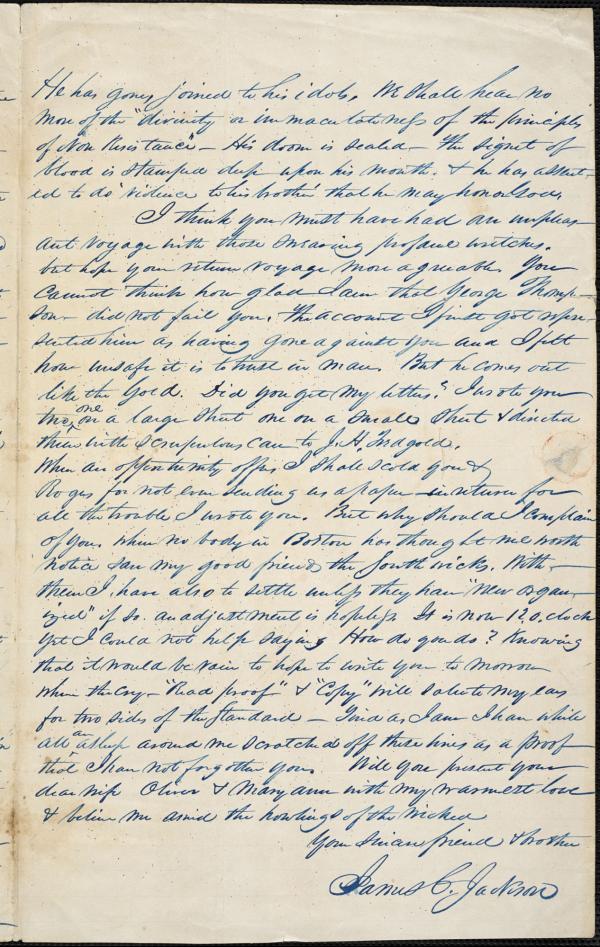 He has gone, joined to his idols. We shall hear no
more of the "divinity or immaculateness of the principles
of Non Resistance" – His doom is sealed – The signet of
blood is stamped deep upon his mouth. & he has assent-
ed to do violence to his brother that he may honor God.
I think you must have had an unpleas-
ant voyage with those swearing profane witches.
but hope your return voyage more agreeable. You
cannot think how glad I am that George Thomp-
son – did not fail you. The account I first got repre-
sented him as having gone against you and I felt
how unsafe it is to trust in man. But he comes out
like the Gold. Did you get my letters? I wrote you
two, one on a large sheet one on a small sheet & directed
them with scrupulous care to J. H.
When an opportunity offers I shall scold you &
Rogers for not even sending us a paper – in return for
all the trouble I wrote you. But why should I complain
of you when no body in Boston has thought me worth
notice save my good friends the Southwicks. With –
them I have also to settle unless they have "New Organ-
ized" if so. an adjustment is hopeless It is now 12 o,clock
yet I could not help saying How do you do? Knowing
that it would be vain to hope to write you to morrow
when the cry – "Read proof" & "Copy" will salute my ears
for two sides of the Standard – Tired as I am I have while
all an asleep around me scratched off these lines as a proof
that I have not forgotten you. Will you present your
dear wife Oliver & Mary ann with my warmest love
& believe me amid the howlings of the wicked
Your friend & brother
James C. Jackson